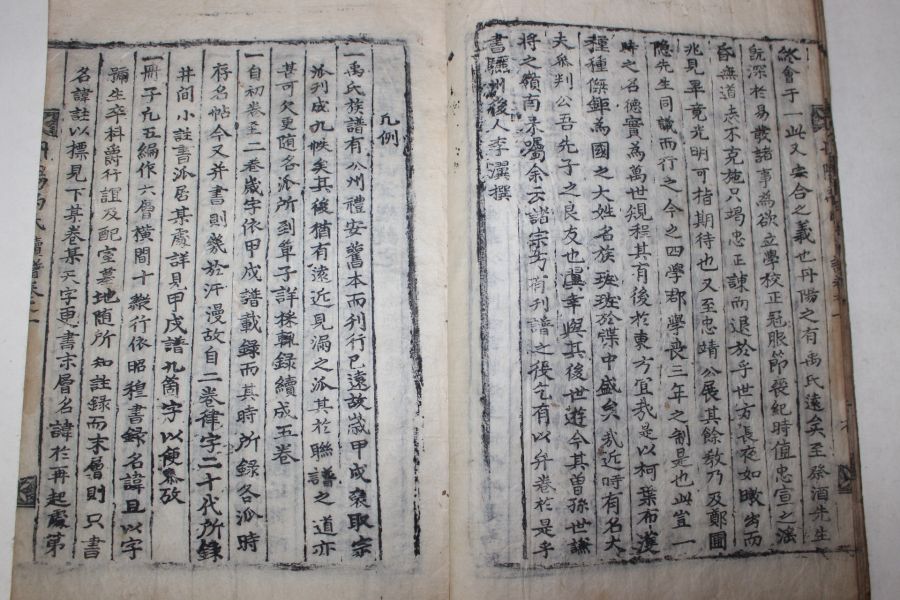 於會于一此又安合之義也丹陽之有禹氏遠矣至祭酒先生
旣深於易載諸事爲欲立學校正冠服節喪紀時値忠宣之淫
昏無道志不克施只竭忠正諫而退於乎世方長夜如暾出而
兆見畢竟光明可指期待也又至忠靖公展其餘敎乃及鄭圃
隱先生同議而行之今之四學郡學喪三年之制是也此豈一
時之名德實爲萬世規程其有後於東方宜哉是以柯葉布濩
種種傑鉀爲國之大姓名族班班於牒中盛矣哉近時有名大
夫參判公吾先子之良友也瀷幸與其後世遊今其曾孫世謙
將之嶺南來囑余云諸宗方有刊譜之役乞有以弁卷於是乎
書驪州後人李瀷撰
凡例
一禹氏族譜有公州禮安舊本而刊行已遠故歲甲戌裒取宗
派刋成九帙矣其後猶有遠近見漏之派其於聯譜之道亦
甚可欠更隨各派所到單子詳採輒錄續成五卷
一自初卷至二卷歲字依甲戌譜載錄而其時所錄各派時
存名帖今又幷書則幾於汗漫故自二卷律字二十代所錄
井間小註書派居某處詳見甲戌譜九箇字以便參攷
一冊子凡五編作六層橫間十數行依昭穆書錄名諱且以字
號生卒科爵行誼及配室墓地隨所知註錄而末層則只書
名諱註以標見下某卷某天字更書末層名諱於再起處第